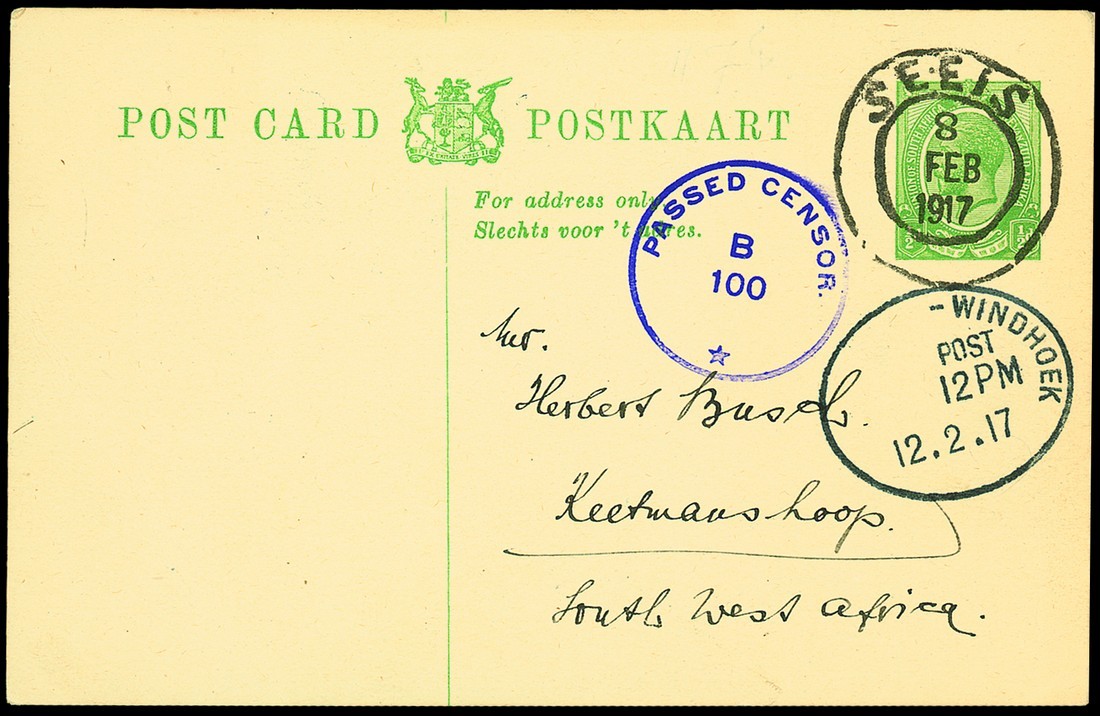 POST CARD POSTKAART
For address only.
Slechts voor 't adres.
SEEIS
8
FEB
1917
½ ½d
PASSED CENSOR.
B
100
-WINDHOEK
POST
12PM
12.2.17
Mr.
Herbert Busch.
Keetmanshoop.
South West Africa.